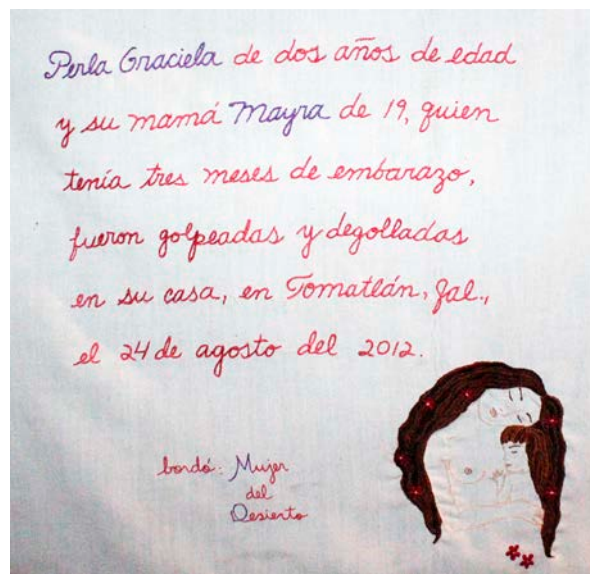 Perla Graciela de dos años de edad
y su mamá Mayra de 19, quien
tenía tres meses de embarazo,
fueron golpeadas y degolladas
en su casa, en Tomatlán, Jal.,
el 24 de agosto del 2012.
bordó: Mujer
del
Desierto